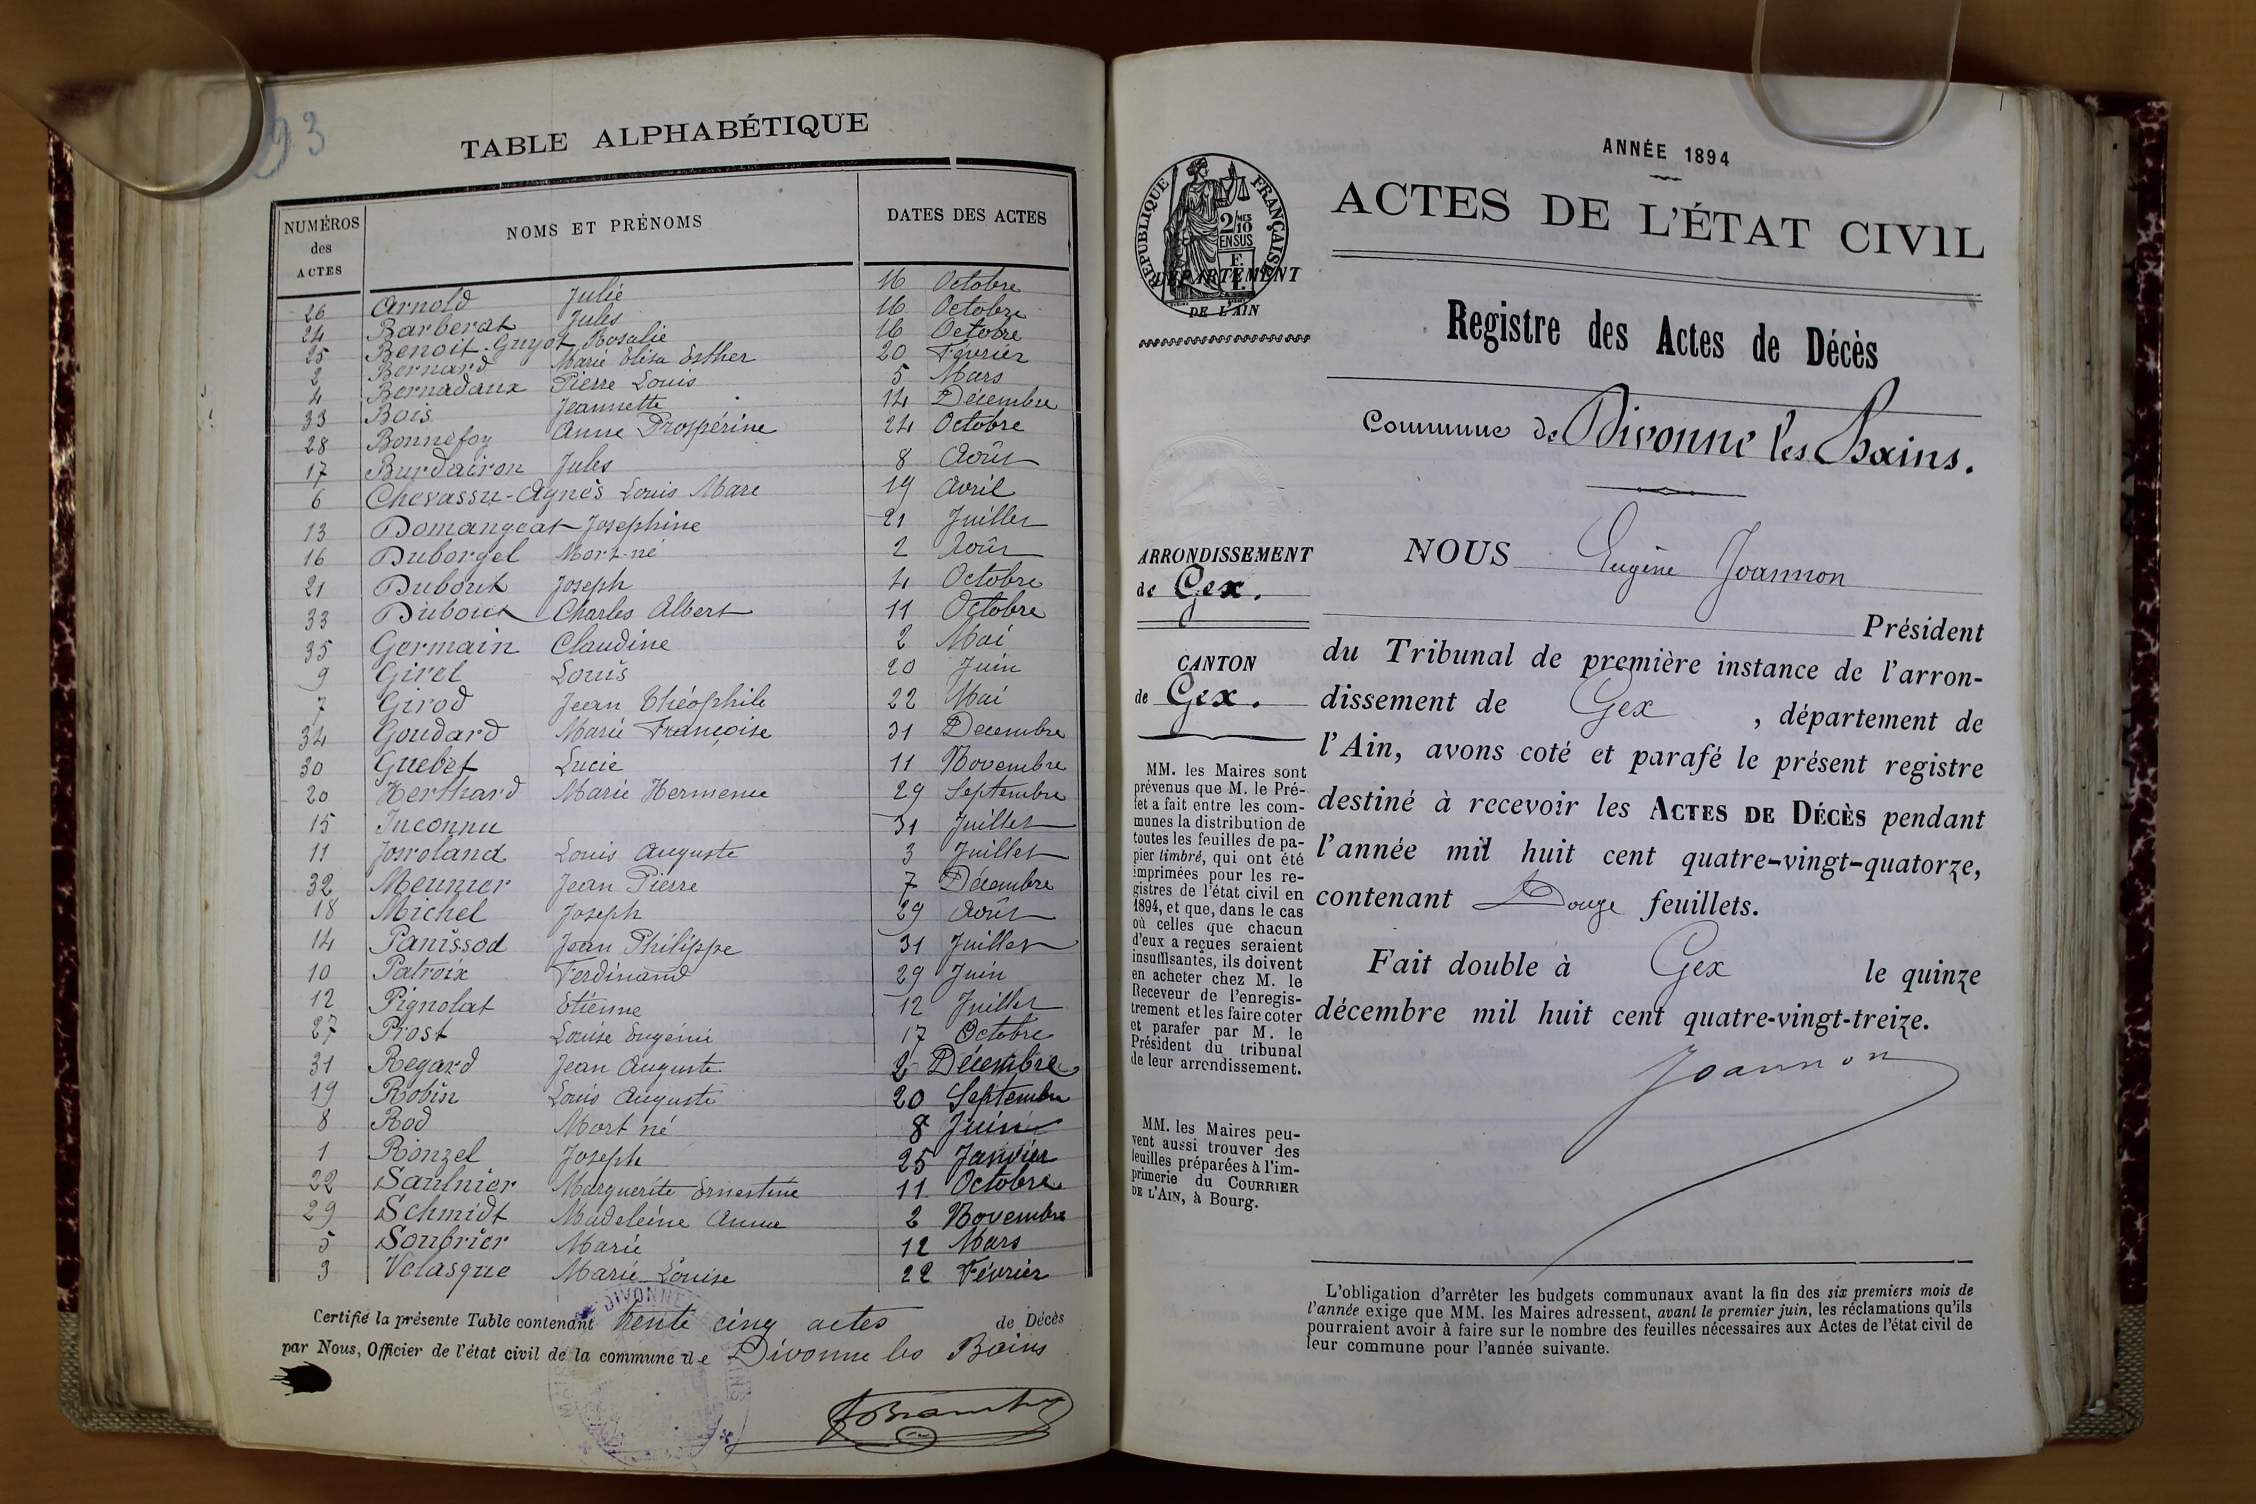 93
TABLE ALPHABÉTIQUE
NUMÉROS des ACTES NOMS ET PRÉNOMS DATES DES ACTES
26 Arnold Julie 16 Octobre
24 Barberat Jules 16 Octobre
25 Benoit-Guyot Rosalie 16 Octobre
2 Bernard Marie Elisa Esther 20 Février
4 Bernadaux Pierre Louis 5 Mars
33 Bois Jeannette 14 Décembre
28 Bonnefoy Anne Prospérine 24 Octobre
17 Burdairon Jules 8 Août
6 Chevassu-Agnès Louis Marc 19 Avril
13 Domangeat Josephine 21 Juillet
16 Duborgel Mort-né 2 Août
21 Dubout Joseph 4 Octobre
33 Dubout Charles Albert 11 Octobre
35 Germain Claudine 2 Mai
9 Girel Louis 20 Juin
7 Girod Jean Théophile 22 Mai
34 Goudard Marie Françoise 31 Decembre
30 Guebet Lucie 11 Novembre
20 Herthard Marie Hermenie 29 Septembre
15 Inconnu 31 Juillet
11 Josroland Louis Auguste 3 Juillet
32 Meunier Jean Pierre 7 Décembre
18 Michel Joseph 29 Août
14 Panissod Jean Philippe 31 Juillet
10 Patroix Ferdinand 29 Juin
12 Pignolat Etienne 12 Juillet
27 Prost Louise Eugénie 17 Octobre
31 Regard Jean Auguste 2 Décembre
19 Robin Louis Auguste 20 Septembre
8 Rod Mort né 8 Juin
1 Ronzel Joseph 25 Janvier
22 Saulnier Marguerite Ernestine 11 Octobre
29 Schmidt Madeleine Anne 2 Novembre
5 Soubrier Marie 12 Mars
3 Velasque Marie Louise 22 Février
Certifié la présente Table contenant trente cinq actes de Décès
par Nous, Officier de l'état civil de la commune de Divonne les Bains
ANNÉE 1894
ACTES DE L'ÉTAT CIVIL
RÉPUBLIQUE FRANÇAISE
2/10 MES
EN SUS
DÉPARTEMENT
DE L'AIN
Registre des Actes de Décès
Commune de Divonne les Bains.
ARRONDISSEMENT
de Gex.
CANTON
de Gex.
MM. les Maires sont
prévenus que M. le Pré-
fet a fait entre les com-
munes la distribution de
toutes les feuilles de pa-
pier timbré, qui ont été
imprimées pour les re-
gistres de l'état civil en
1894, et que, dans le cas
où celles que chacun
d'eux a reçues seraient
insuffisantes, ils doivent
en acheter chez M. le
Receveur de l'enregis-
trement et les faire coter
et parafer par M. le
Président du tribunal
de leur arrondissement.
MM. les Maires peu-
vent aussi trouver des
feuilles préparées à l'im-
primerie du COURRIER
DE L'AIN, à Bourg.
NOUS Eugène Joannon
Président
du Tribunal de première instance de l'arron-
dissement de Gex, département de
l'Ain, avons coté et parafé le présent registre
destiné à recevoir les ACTES DE DÉCÈS pendant
l'année mil huit cent quatre-vingt-quatorze,
contenant Douze feuillets.
Fait double à Gex le quinze
décembre mil huit cent quatre-vingt-treize.
Joannon
L'obligation d'arrêter les budgets communaux avant la fin des six premiers mois de
l'année exige que MM. les Maires adressent, avant le premier juin, les réclamations qu'ils
pourraient avoir à faire sur le nombre des feuilles nécessaires aux Actes de l'état civil de
leur commune pour l'année suivante.